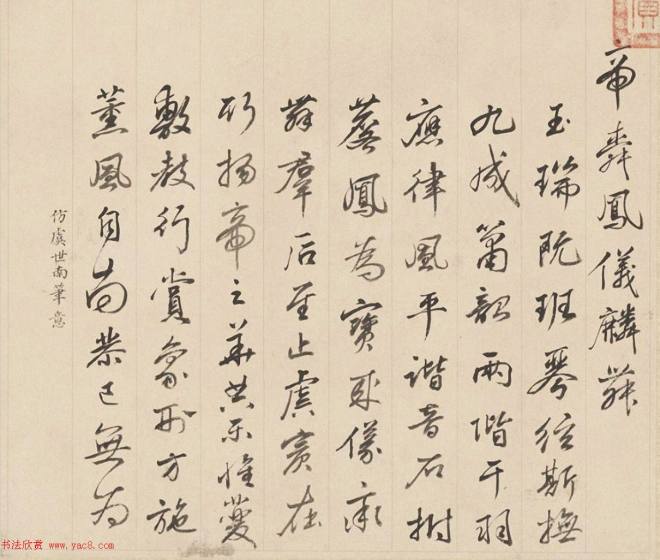 帝舜鳳儀麟舞
玉瑞既班琴絃斯撫
九成簫韶兩階干羽
應律風平諧音石拊
鳳為賓獸儀承
舞羣后至止虞賓在
揚帝之華樂惟夔
敷教行賞象刑方施
薰風自南恭己無為
仿虞世南筆意
书法欣赏 www.yac8.com